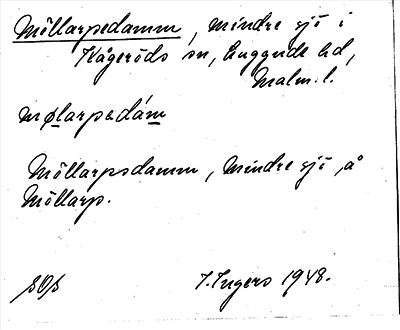 Möllarpedamm, mindre sjö i
Kågeröds sn, Luggude hd,
Malm. l.
mølarpedám
Möllarpsdamm, mindre sjö, å
Möllarp.
I. Ingers 1948.